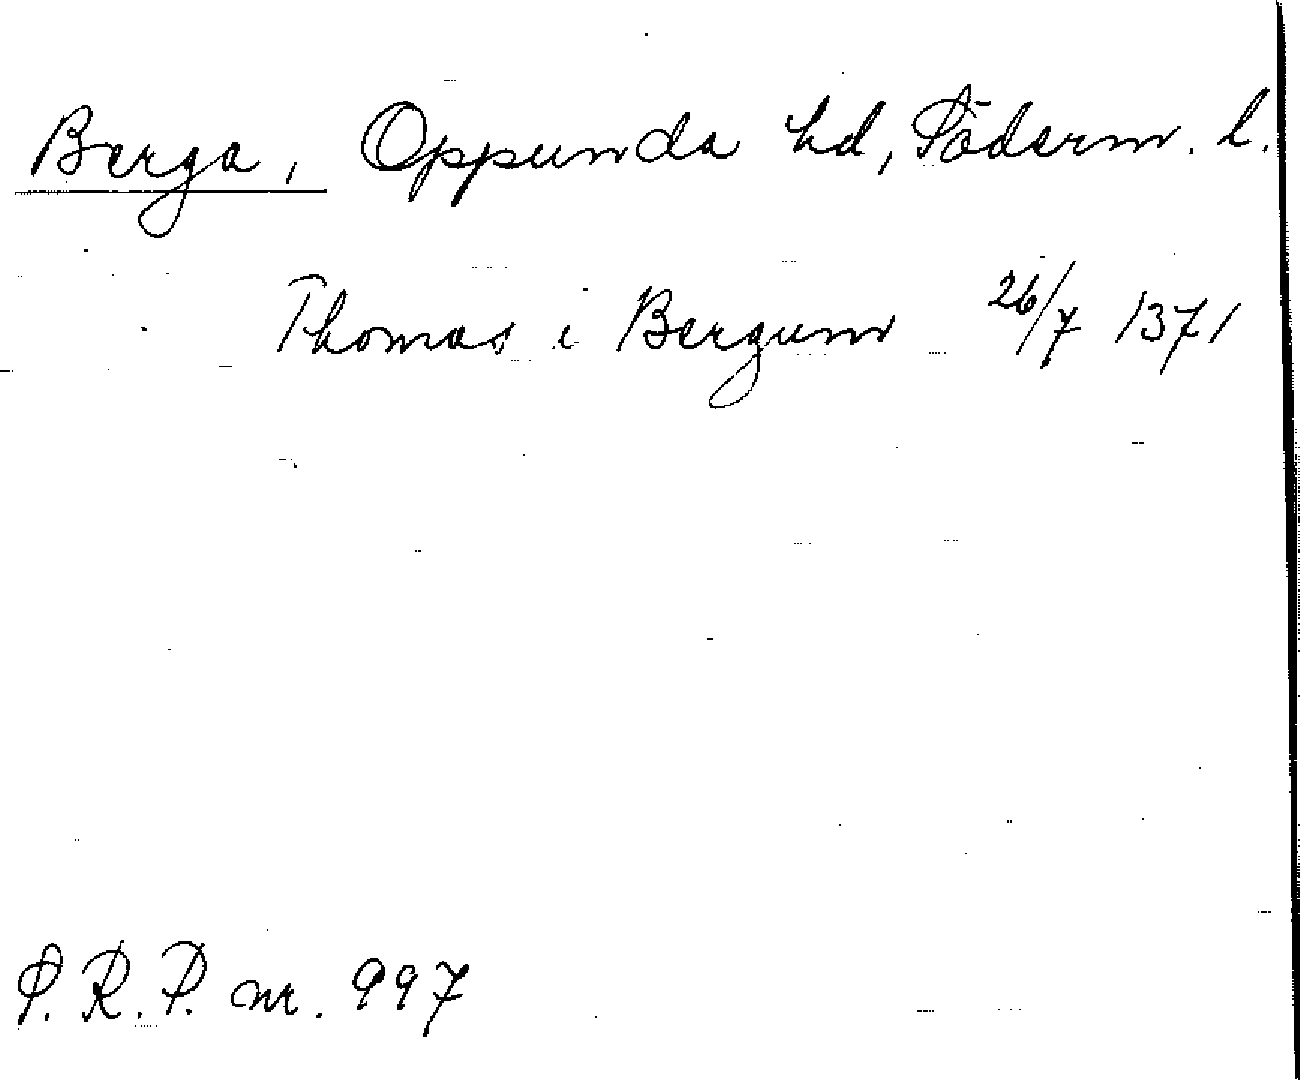 Berga, Oppunda hd, Söderm. l.
Thomas i Bergum 26/7 1371
S.R.P. nr. 997